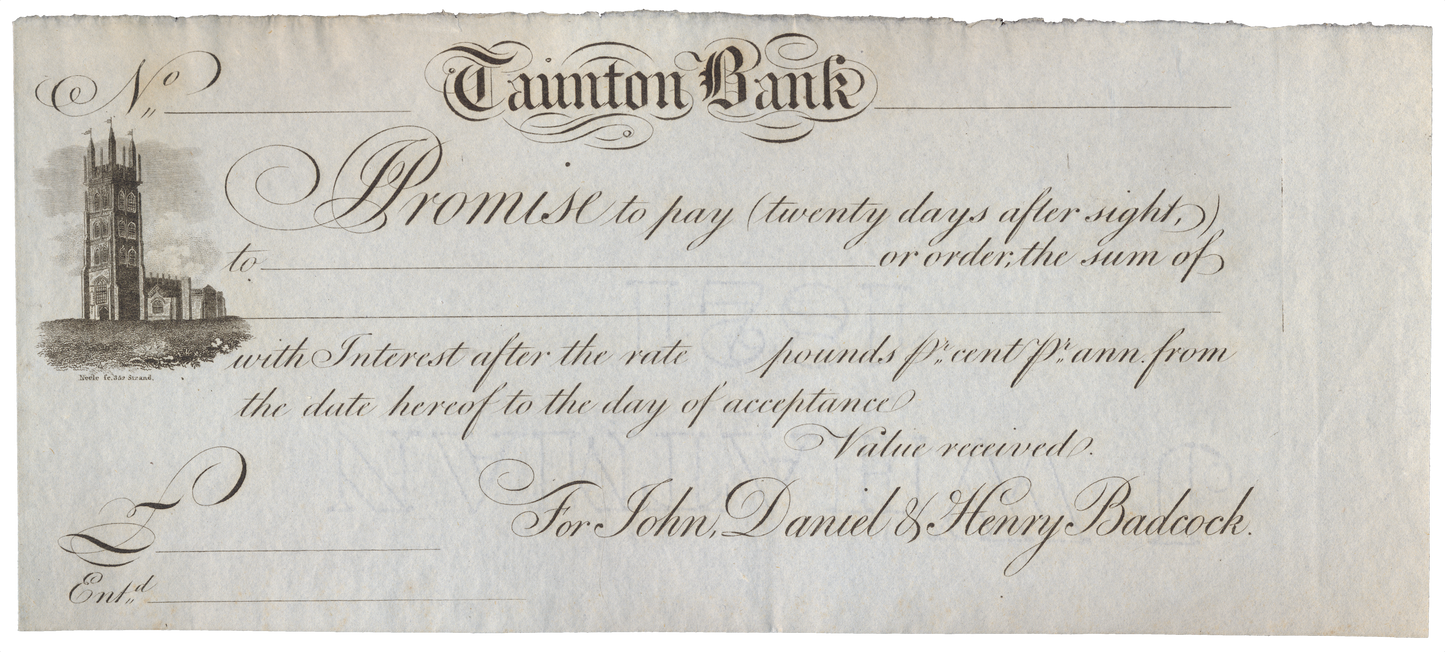 No
Taunton Bank
I Promise to pay (twenty days after sight,)
to or order, the sum of
with Interest after the rate pounds Pr. cent Pr. ann. from
the date hereof to the day of acceptance
Value received.
£ For John, Daniel & Henry Badcock.
Entd.
Neele Sc. 352 Strand.